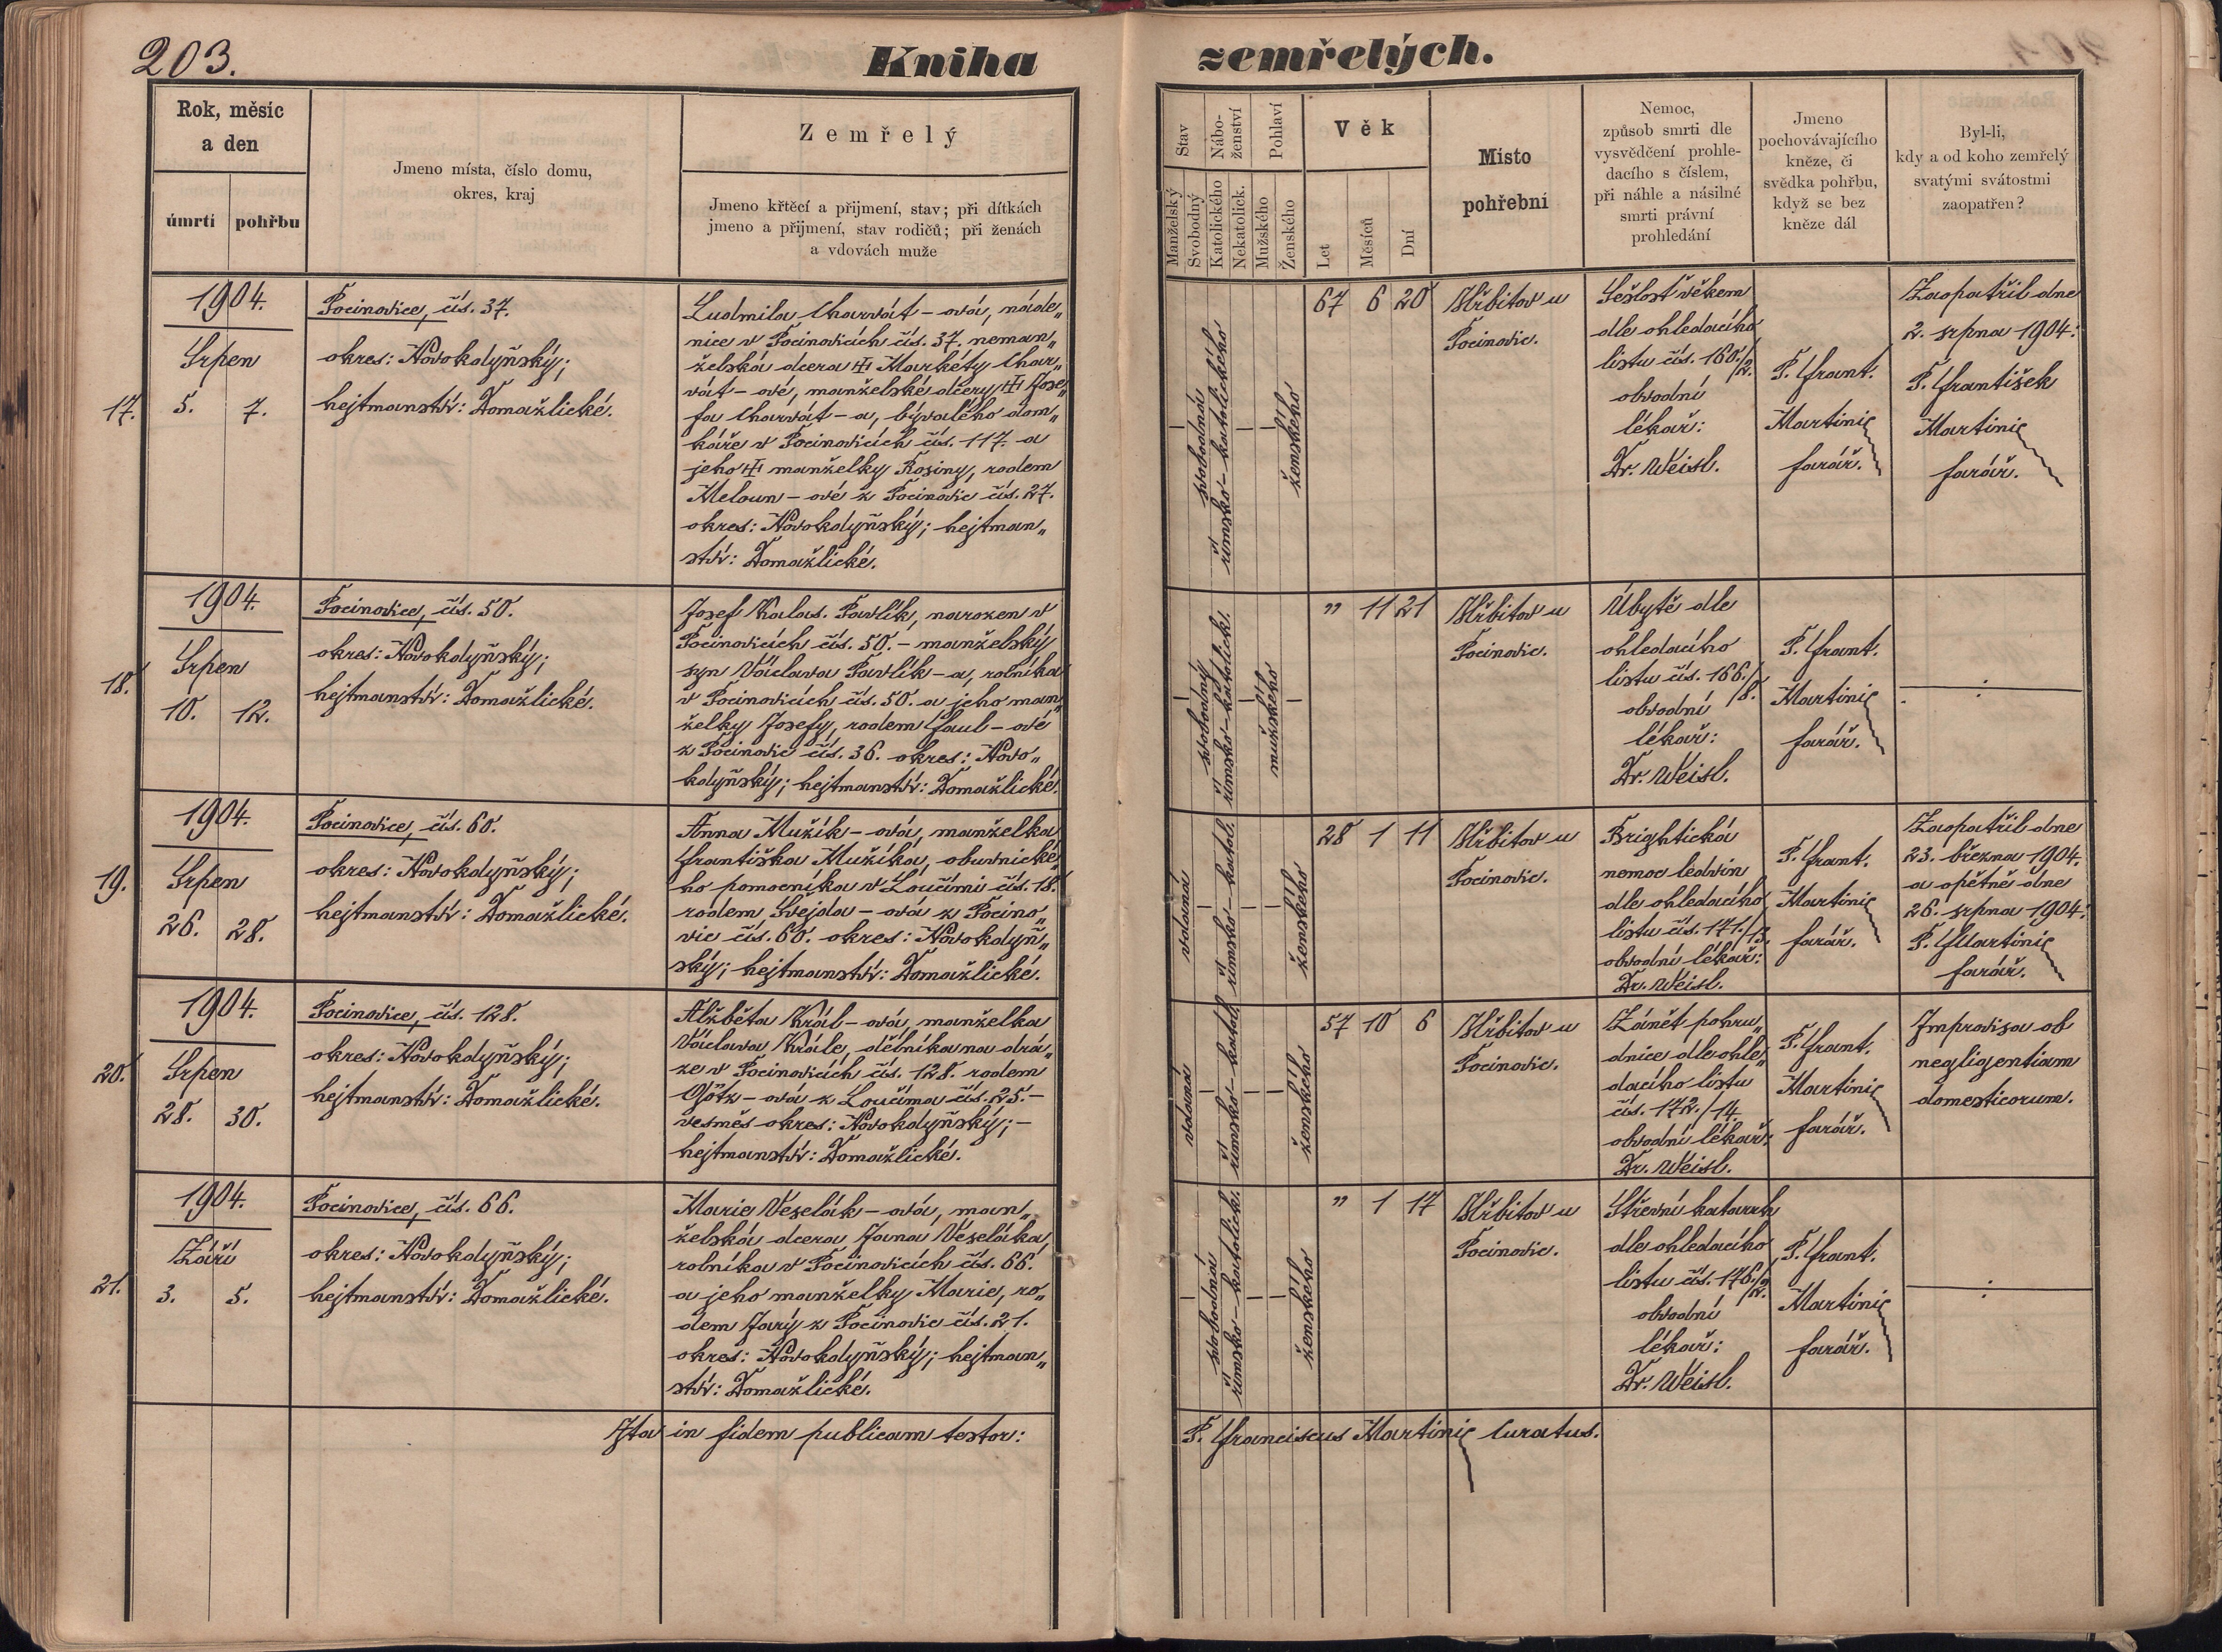 203.
Kniha zemřelých.
Rok, měsíc
a den
úmrtí
pohřbu
Jmeno místa, číslo domu,
okres, kraj
Zemřelý
Jmeno křtěcí a přijmení, stav; při dítkách
jmeno a přijmení, stav rodičů; při ženách
a vdovách muže
Stav
Manželský
Svobodný
Nábo-
ženství
Katolického
Nekatolick.
Pohlaví
Mužského
Ženského
Věk
Let
Měsíců
Dní
Místo
pohřební
Nemoc,
způsob smrti dle
vysvědčení prohle-
dacího s číslem,
při náhle a násilné
smrti právní
prohledání
Jmeno
pochovávajícího
kněze, či
svědka pohřbu,
když se bez
kněze dál
Byl-li,
kdy a od koho zemřelý
svatými svátostmi
zaopatřen?
17.
1904.
Srpen
5. 7.
Pocinovice, čís. 37.
okres: Novokdyňský;
hejtmanství: Domažlické.
Ludmila Charvát-ová, náde„
nice v Pocinovicích čís. 37. neman„
želská dcera Markéty Char„
vát-ové, manželské dcery Jose„
fa Charvát-a, bývalého dom„
káře v Pocinovicích čís. 117. a
jeho manželky Rosiny, rodem
Meloun-ové z Pocinovic čís. 27.
okres: Novokdyňský; hejtman„
ství: Domažlické.
svobodná
římsko-katolického
ženského
67 6 20
Hřbitov u
Pocinovic.
Sešlost věkem
dle ohledacího
listu čís. 160./2.
obvodní
lékař:
Dr. Weisl.
P. Frant.
Martinic
farář.
Zaopatřil dne
2. srpna 1904:
P. František
Martinic
farář.
18.
1904.
Srpen
10. 12.
Pocinovice, čís. 50.
okres: Novokdyňský;
hejtmanství: Domažlické.
Josef Kalas. Pavlík, narozen v
Pocinovicích čís. 50. - manželský
syn Václava Pavlík-a, rolníka
v Pocinovicích čís. 50. a jeho man„
želky Josefy, rodem Faul-ové
z Pocinovic čís. 36. okres: Novo„
kdyňský; hejtmanství: Domažlické.
svobodný
římsko-katolick.
mužského
" 11 21
Hřbitov u
Pocinovic.
Úbytě dle
ohledacího
listu čís. 166./8.
obvodní
lékař:
Dr. Weisl.
P. Frant.
Martinic
farář.
19.
1904.
Srpen
26. 28.
Pocinovice, čís. 60.
okres: Novokdyňský;
hejtmanství: Domažlické.
Anna Mužík-ová, manželka
Františka Mužíka, obuvnické„
ho pomocníka v Loučimi čís. 18.
rodem Švejda-ová z Pocino„
vic čís. 60. okres: Novokdyň„
ský; hejtmanství: Domažlické.
vdaná
římsko-katol.
ženského
28 1 11
Hřbitov u
Pocinovic.
Brightická
nemoc ledvin
dle ohledacího
listu čís. 171./13.
obvodní lékař:
Dr. Weisl.
P. Frant.
Martinic
farář.
Zaopatřil dne
23. března 1904.
a opětně dne
26. srpna 1904:
P. F. Martinic
farář.
20.
1904.
Srpen
28. 30.
Pocinovice, čís. 128.
okres: Novokdyňský;
hejtmanství: Domažlické.
Alžběta Král-ová, manželka
Václava Krále, dělníka na drá„
ze v Pocinovicích čís. 128. rodem
Götz-ová z Loučima čís. 25. -
vesměs okres: Novokdyňský; -
hejtmanství: Domažlické.
vdaná
římsko-katol.
ženského
57 10 6
Hřbitov u
Pocinovic.
Zánět pohru„
dnice dle ohle„
dacího listu
čís. 172./14.
obvodní lékař:
Dr. Weisl.
P. Frant.
Martinic
farář.
Improvisa ob
negligentiam
domesticorum.
21.
1904.
Září
3. 5.
Pocinovice, čís. 66.
okres: Novokdyňský;
hejtmanství: Domažlické.
Marie Veselák-ová, man„
želská dcera Jana Veseláka,
rolníka v Pocinovicích čís. 66.
a jeho manželky Marie, ro„
dem Jarý z Pocinovic čís. 21.
okres: Novokdyňský; hejtman„
ství: Domažlické.
svobodná
římsko-katolick.
ženského
" 1 17
Hřbitov u
Pocinovic.
Střevní katarrh
dle ohledacího
listu čís. 176./2.
obvodní
lékař:
Dr. Weisl.
P. Frant.
Martinic
farář.
Ita in fidem publicam testor:
P. Franciscus Martinic Curatus.